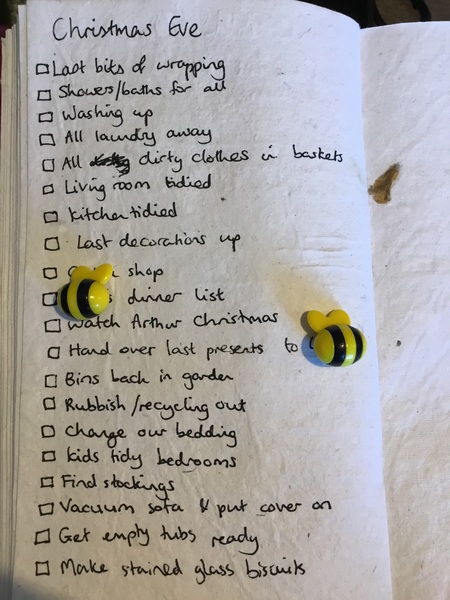 Christmas Eve
Last bits of wrapping
Showers/baths for all
Washing up
All laundry away
All dirty clothes in baskets
Living room tidied
kitchen tidied
Last decorations up
shop
dinner list
Watch Arthur Christmas
Hand over last presents to
Bins back in garden
Rubbish/recycling out
Change our bedding
kids tidy bedrooms
Find stockings
Vacuum sofa & put cover on
Get empty tubs ready
Make stained glass biscuits